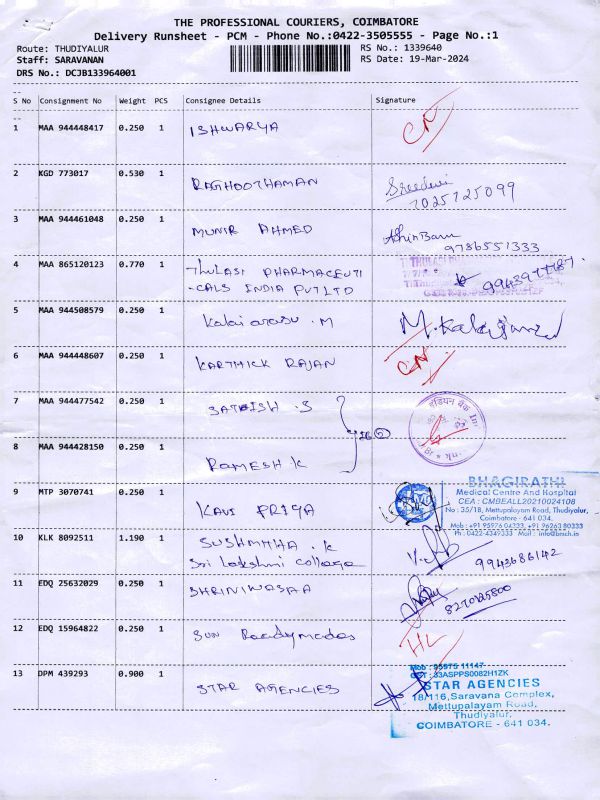 THE PROFESSIONAL COURIERS, COIMBATORE
Delivery Runsheet - PCM - Phone No.:0422-3505555 - Page No.:1
Route: THUDIYALUR
RS No.: 1339640
Staff: SARAVANAN
RS Date: 19-Mar-2024
DRS No.: DCJB133964001
S No Consignment No Weight PCS Consignee Details Signature
1 MAA 944448417 0.250 1 ISHWARYA
2 KGD 773017 0.530 1 RAGHOOTHAMAN Sreedevi
7025725099
3 MAA 944461048 0.250 1 MUNIR AHMED
9786551333
4 MAA 865120123 0.770 1 THULASI PHARMACEUTI
-CALS INDIA PVT LTD
5 MAA 944508579 0.250 1 Kalaiarasu .M
6 MAA 944448607 0.250 1 KARTHICK RAJAN
7 MAA 944477542 0.250 1 SATHISH .S
8 MAA 944428150 0.250 1 RAMESH K
9 MTP 3070741 0.250 1 KAVI PRIYA
BHAGIRATHI
Medical Centre And Hospital
CEA : CMBEALL20210024108
No : 35/18, Mettupalayam Road, Thudiyalur,
Coimbatore - 641 034.
Mob : +91 95976 04333, +91 96263 80333
Ph : 0422-4349333 Mail : info@bmch.in
10 KLK 8092511 1.190 1 SUSHMITHA .K
Sri Lakshmi College
9943686142
11 EDQ 25632029 0.250 1 SHRINIWASAA
8270125800
12 EDQ 15964822 0.250 1 SUN Readymades
HL
13 DPM 439293 0.900 1 STAR AGENCIES
Mob : 95975 11147
GST : 33ASPPS0082H1ZK
STAR AGENCIES
18/116, Saravana Complex,
Mettupalayam Road,
Thudiyalur,
COIMBATORE - 641 034.